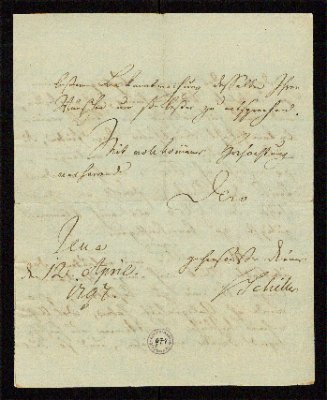 besten Bekanntmachung desselben Ihren
Wünschen um so besser zu entsprechen.
Mit vollkommener Hochachtung
verharrend
Dero
Jena
d 12. April.
1797.
gehorsamster Diener
Schiller